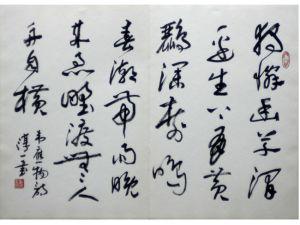 独怜幽草涧
边生上有黄
鹂深树鸣
春潮带雨晚
来急野渡无人
舟自横
韦应物诗